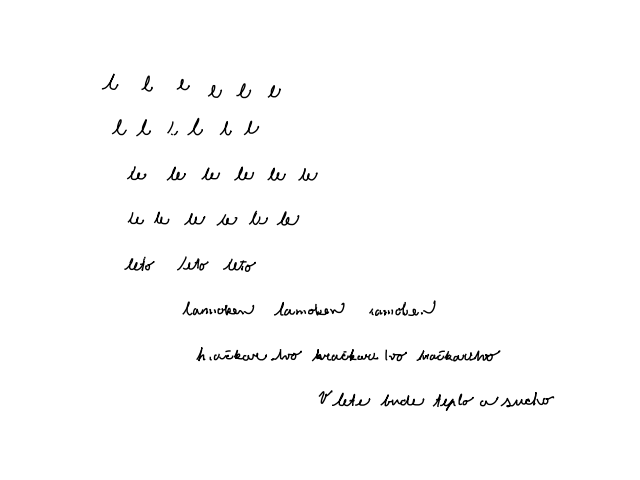 l l l l l l
l l l l l l
le le le le le le
le le le le le le
leto leto leto
lamoken lamoken lamoken
hračkarstvo hračkarstvo hračkarstvo
V lete bude teplo a sucho